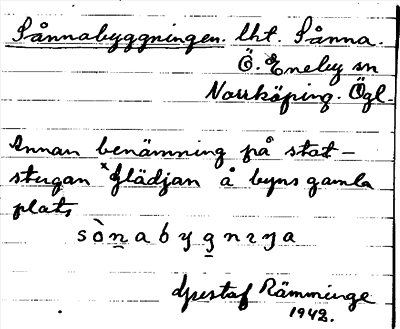 Sånnabyggningen. lht. Sånna.
Ö. Eneby sn
Norrköping. Ögl.
Annan benämning på stat-
stugan ˣGlädjan å byns gamla
plats
sònabygnɩŋa
Gustaf Rämminge
1942.